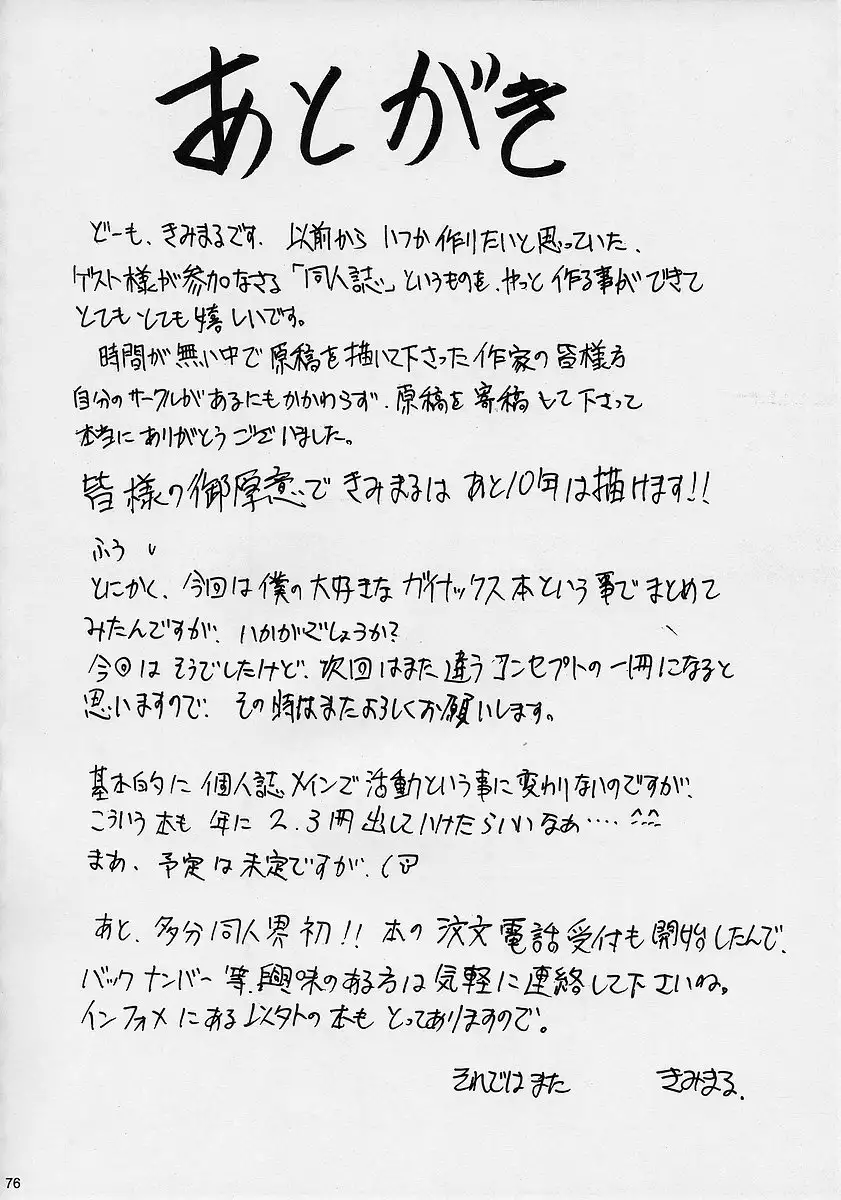 あとがき
どーも、きみまるです。以前からいつか作りたいと思っていた、
ゲスト様が参加なさる「同人誌」というものを、やっと作る事ができて
とてもとても嬉しいです。
時間が無い中で原稿を描いて下さった作家の皆様方
自分のサークルがあるにもかかわらず、原稿を寄稿して下さって
本当にありがとうございました。
皆様の御厚意できみまるはあと10年は描けます!!
ふう
とにかく、今回は僕の大好きなガイナックス本という事でまとめて
みたんですが、いかがでしょうか?
今回はそうでしたけど、次回はまた違うコンセプトの一冊になると
思いますので、その時はまたよろしくお願いします。
基本的に個人誌メインで活動という事に変わりないのですが、
こういう本も年に2.3冊出していけたらいいなあ…‥^^
まあ、予定は未定ですが、(
あと、多分同人界初!!本の注文電話受付も開始したんで、
バックナンバー等、興味のある方は気軽に連絡して下さいね。
インフォメにある以外の本もとってありますので。
それではまた きみまる.
76